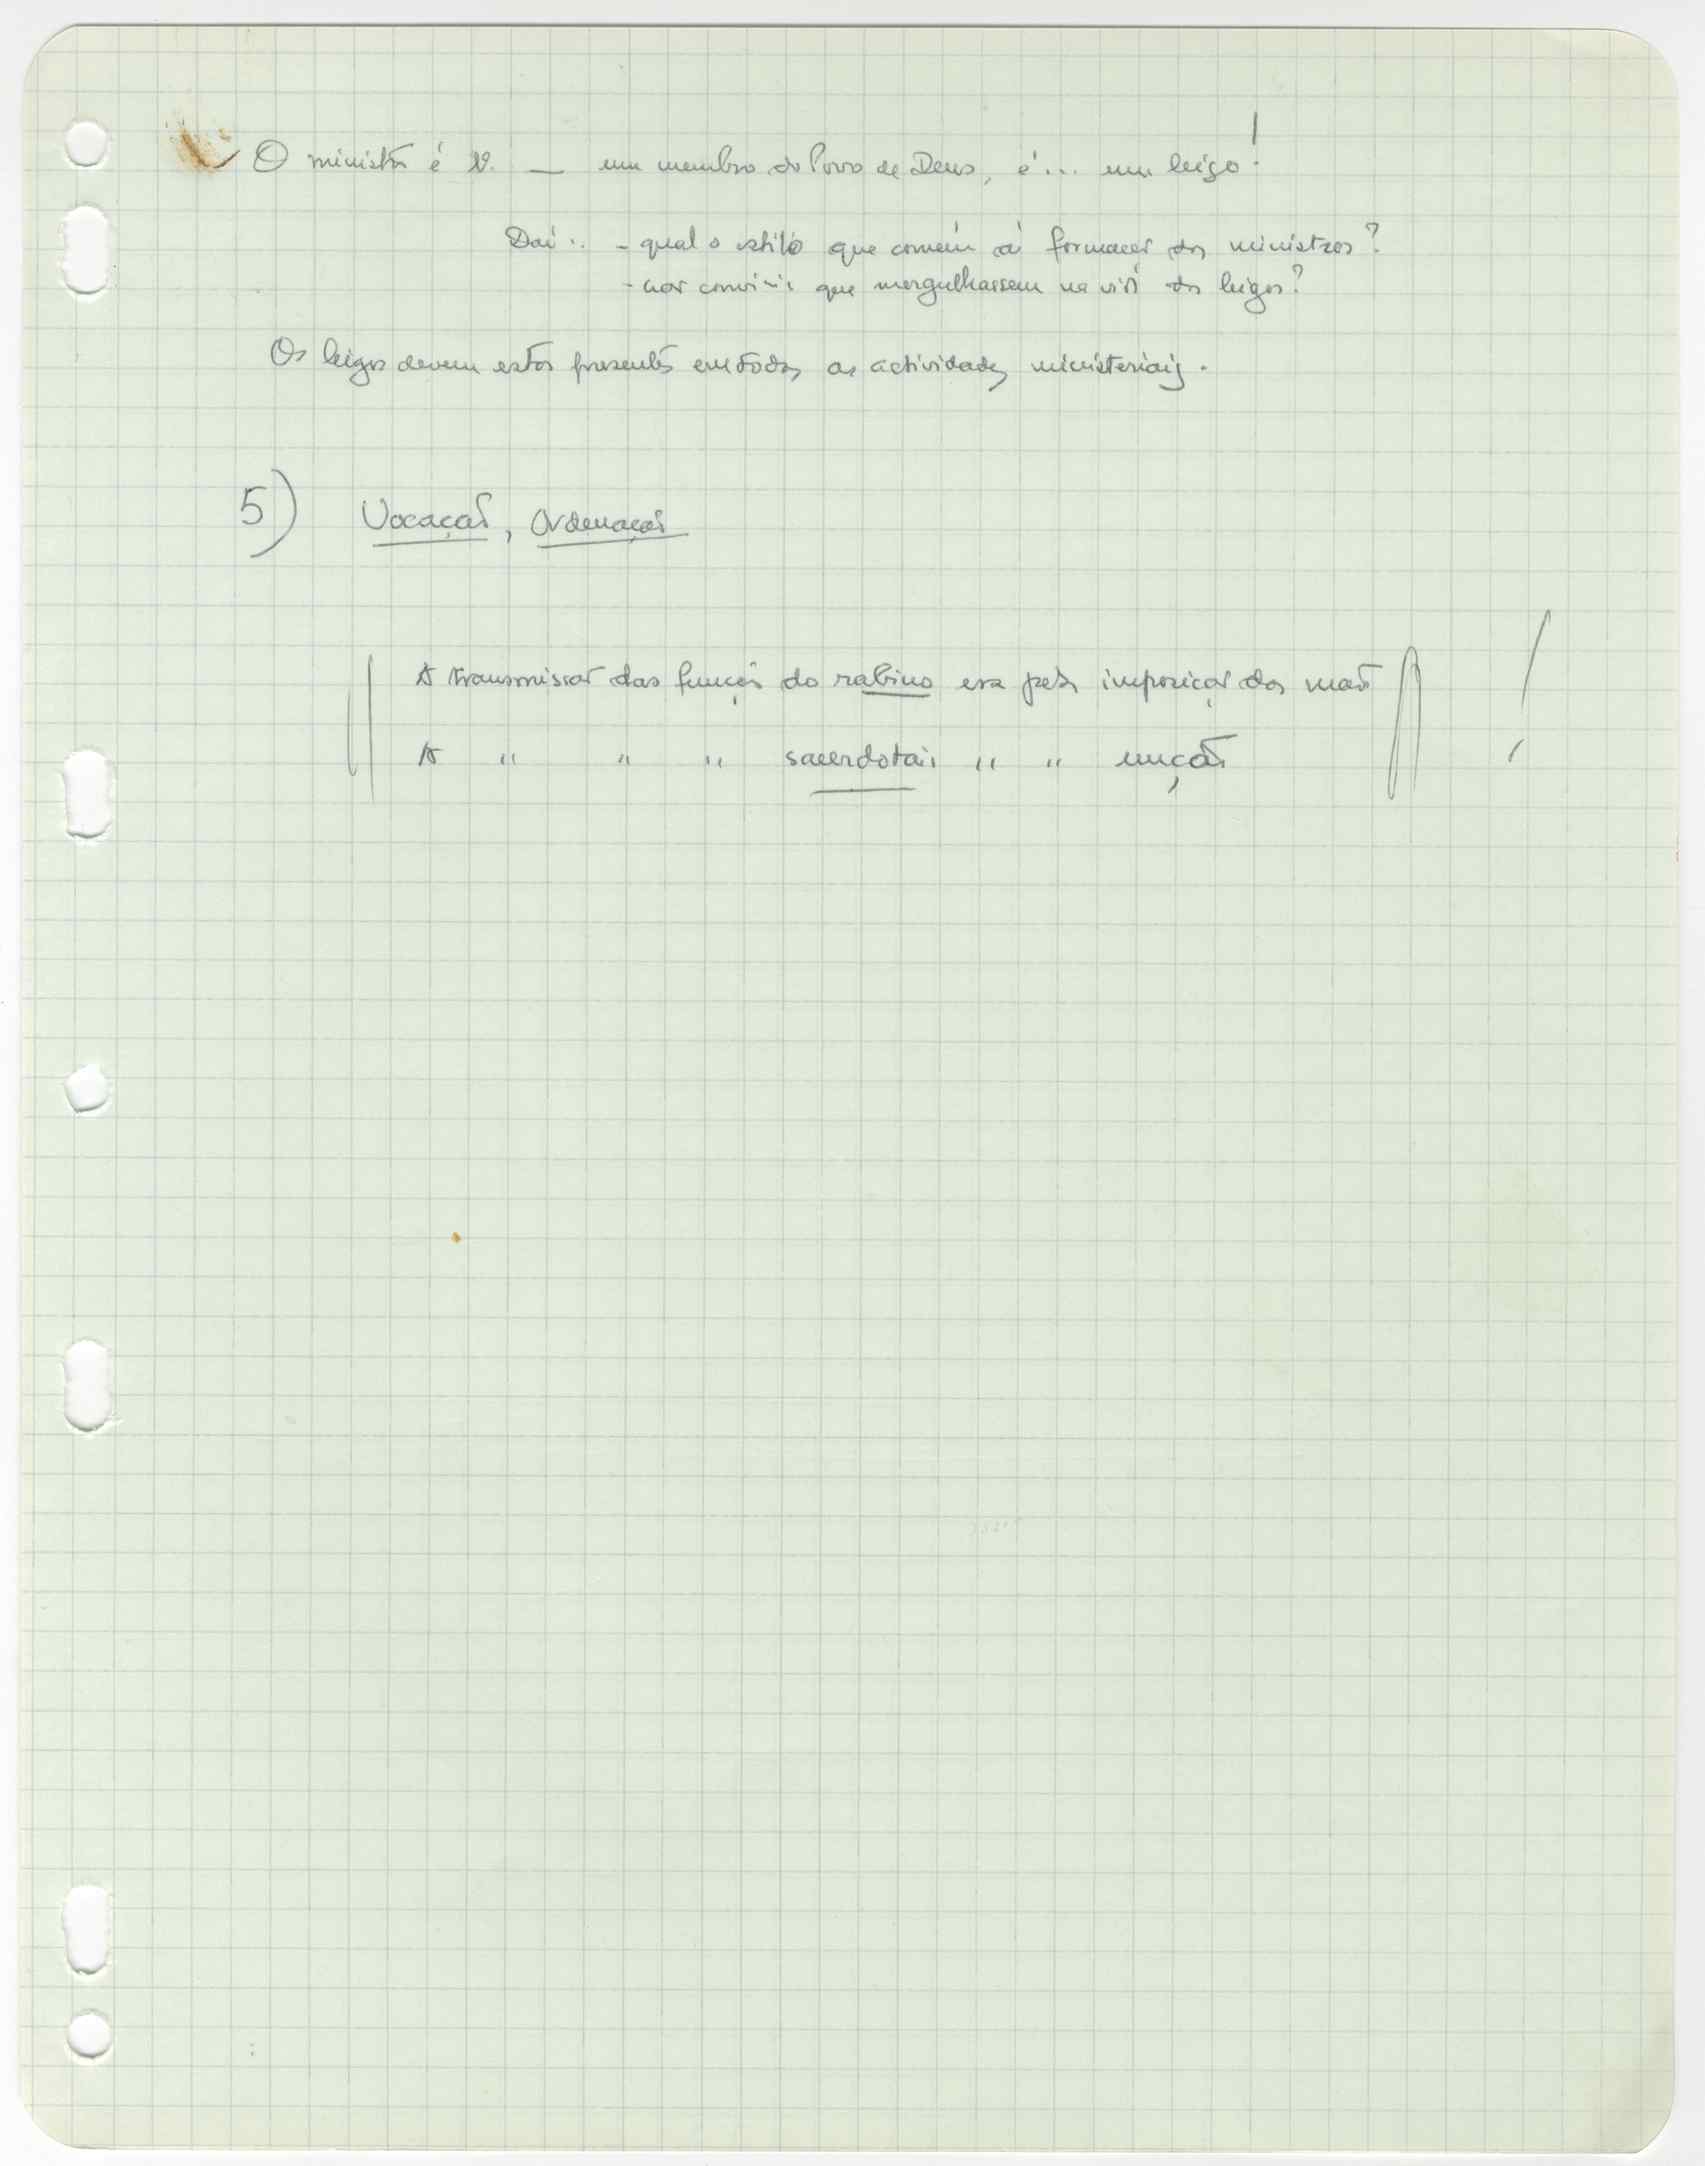 O ministro é 1º. — um membro do Povo de Deus, é... um leigo!
Daí.. - qual o estilo que convém à formação dos ministros?
- não convinha que mergulhassem na vida dos leigos?
Os leigos devem estar presentes em todas as actividades ministeriais.
5) Vocação, Ordenação
A transmissão das funções do rabino era pela imposição das mãos !
A " " " sacerdotais " " unção